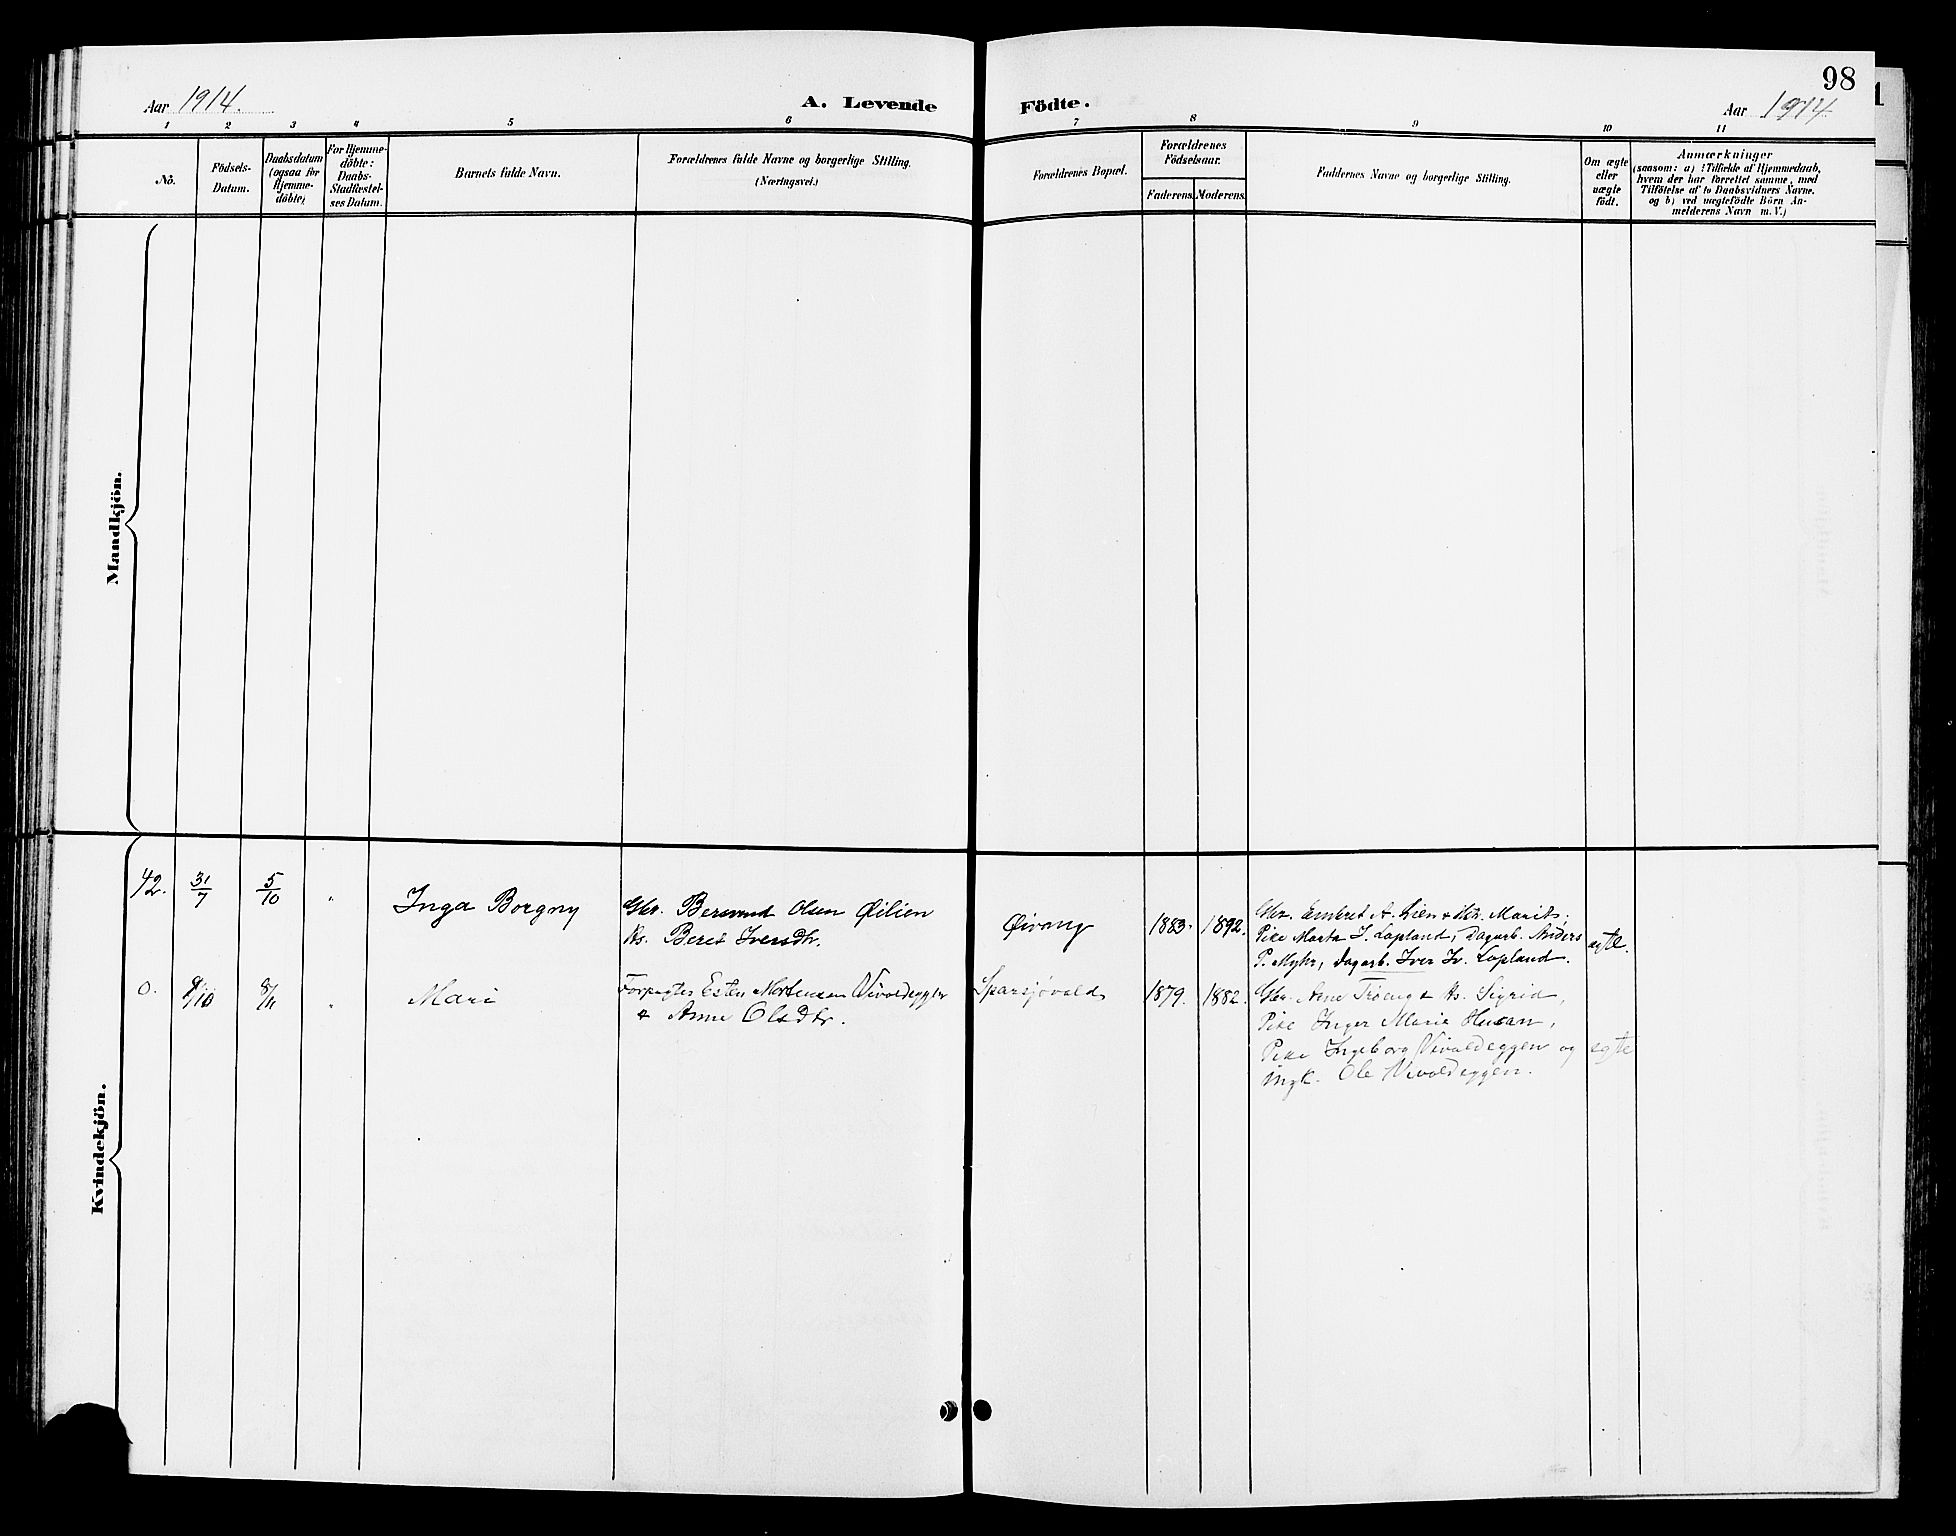 Aar 1914.
A. Levende
Födte.
98
Aar 1914.
1 2 3 4 5 6 7 8 9 10 11
No.
Födsels-
Datum.
Daabsdatum
(ogsaa for
Hjemme-
döbte)
For Hjemme-
döbte:
Daabs-
Stadfæstel-
ses Datum.
Barnets fulde Navn.
Forældrenes fulde Navne og borgerlige Stilling.
(Næringsvei.)
Forældrenes Bopæl.
Forældrenes
Födselsaar.
Faderens.
Moderens.
Faddernes Navne og borgerlige Stilling.
Om ægte
eller
uægte
födt.
Anmærkninger
(saasom: a) i Tilfælde af Hjemmedaab,
hvem der har forrettet samme, med
Tilföielse af to Daabsvidners Navne.
og b) ved uægtefödte Börn An-
melderens Navn m. V.)
Mandkjön.
Kvindekjön.
42.
31/7
5/10
"
Inga Borgny
Gbr. Bersvend Olsen Øilien
Hs. Beret Iversdtr.
Øivang
1883.
1892.
Gbr. Embret A. Lien & Hs. Marit,
Pike Marta I. Lapland, Dagarb. Anders
P. Myhr, Dagarb. Iver Iv. Lapland.
ægte.
0.
9/10
8/11
"
Mari
Forpagter Esten Mortensen Vivoldeggen
& Anne Olsdtr.
Sparsjøvold
1879.
1882.
Gbr. Arne Trøeng & Hs. Sigrid,
Pike Inger Marie Husan,
Pike Ingeborg Vivoldeggen og
Ungk. Ole Vivoldeggen.
ægte